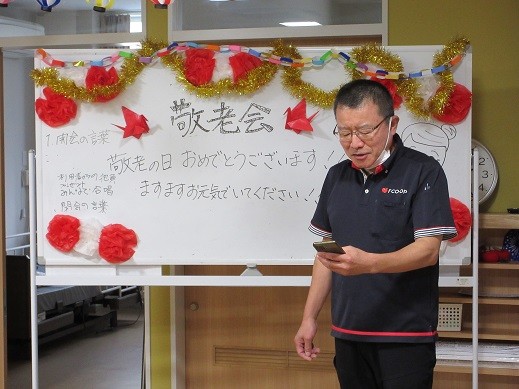 敬老会
1.開会の言葉
敬老の日 おめでとうございます！
ますますお元気でいてください！！
みんなで合唱
閉会の言葉
FCOOP